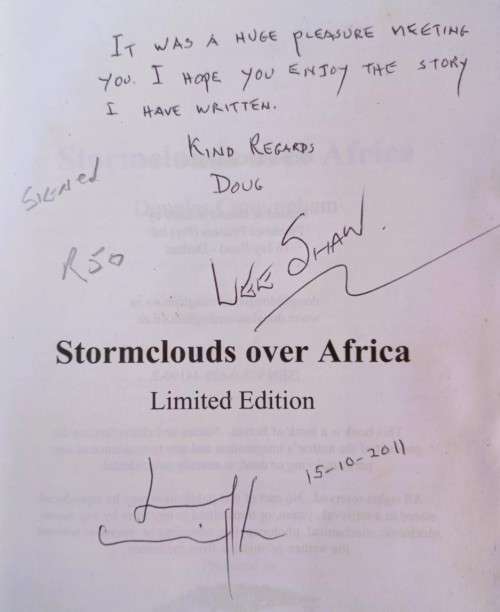 IT WAS A HUGE PLEASURE MEETING
YOU. I HOPE YOU ENJOY THE STORY
I HAVE WRITTEN.
KIND REGARDS
DOUG
SIGNED
R50
LEE SHAW.
Stormclouds over Africa
Limited Edition
15-10-2011